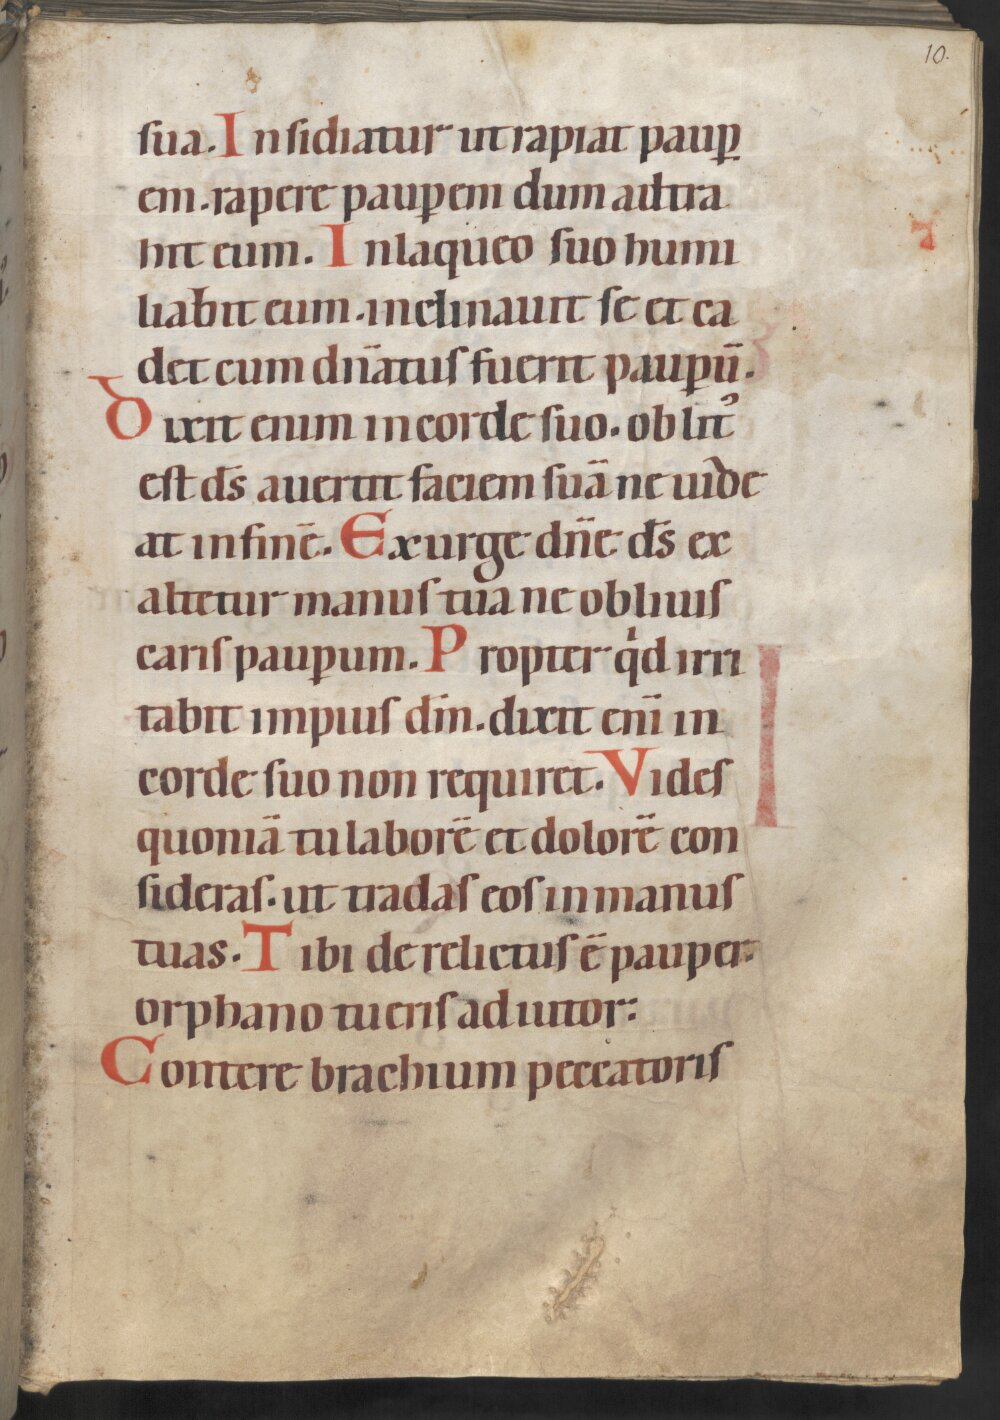 10.
sua. Insidiatur ut rapiat paup̱
em. rapere paup̱em dum adtra
hit eum. In laqueo suo humi
liabit eum. inclinauit se et ca
det cum dn̄atus fuerit paup̱ū.
Dixit enim in corde suo. oblitꝰ
est d̄s auertit faciem suā ne uide
at in finē. Exurge dn̄e d̄s ex
altetur manus tua ne obliuis
caris paup̱um. Propter qͥd irri
tabit impius dm̄. dixit enī in
corde suo non requiret. Vides
quoniā tu laborē et dolorē con
sideras. ut tradas eos in manus
tuas. Tibi derelictus ē pauper.
orphano tu eris adiutor:
Contere brachium peccatoris